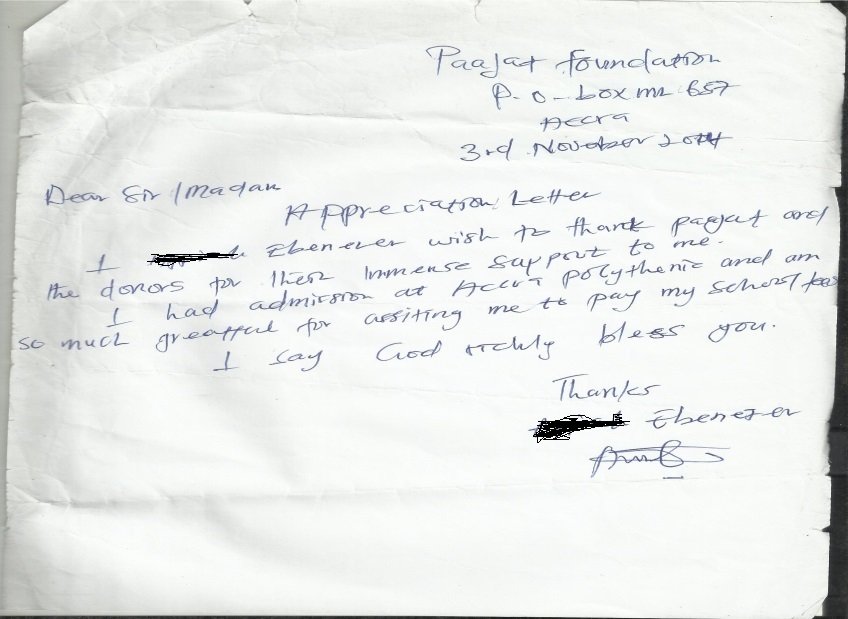 Paajat foundation
P. O - box ML 657
Accra
3rd November 2014
Dear Sir / Madam
Appreciation Letter
I Ebenezer wish to thank paajat and
the donors for their immense support to me.
I had admission at Accra polythenic and am
so much greatful for assiting me to pay my school fees
I say God richly bless you.
Thanks
Ebenezer